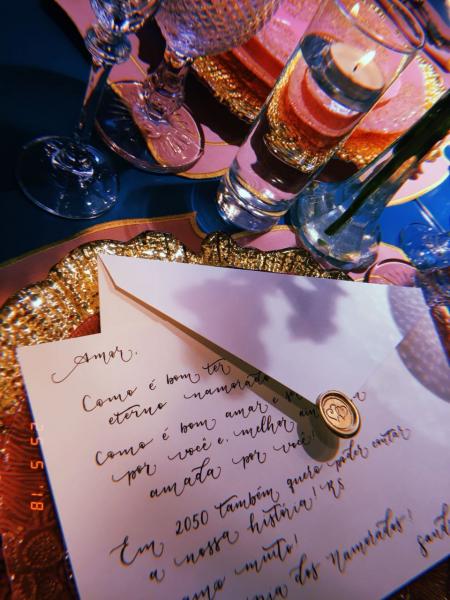 Amor,
Como é bom ter
eterno namorado
Como é bom amar e
por você e, melhor
amada por você!
Em 2050 também quero poder contar
a nossa história! RS
amo muito!
dos Namorados!
81 5 25